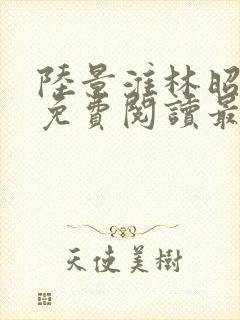 陸景淮林昭
免費閱讀最
天使美樹